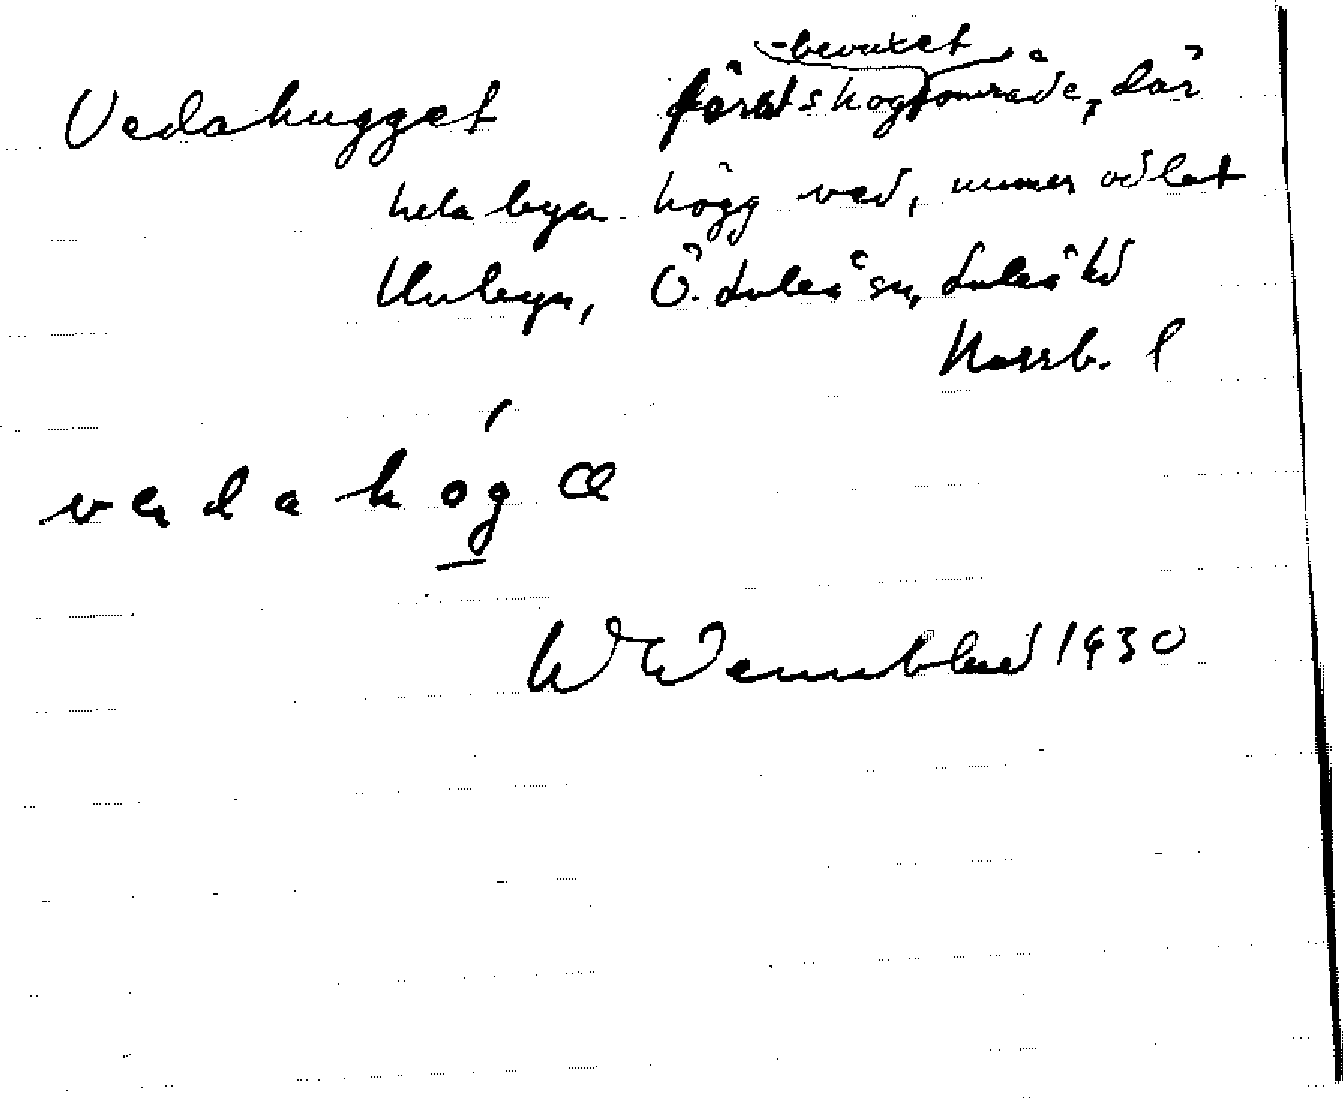 -bevuxet
Vedahugget förut skogsområde, där
hela byn högg ved, numer odlat
Unbyn, Ö. Luleå sn, Luleå hd
Norrb. l
vedahógæ
W Wennblad 1930